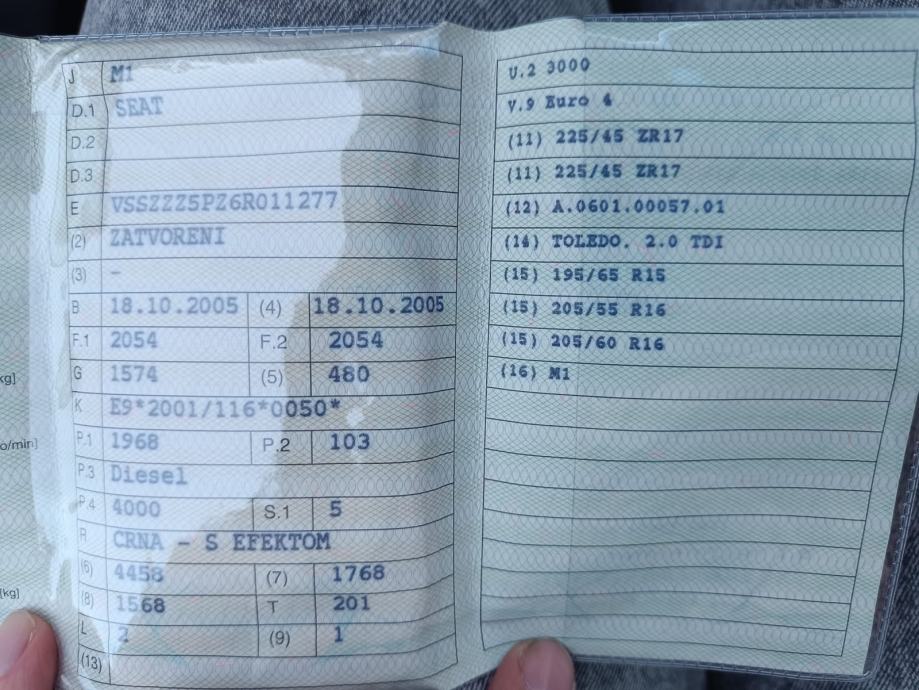 J M1
D.1 SEAT
D.2
D.3
E VSSZZZ5PZ6R011277
(2) ZATVORENI
(3) –
B 18.10.2005 (4) 18.10.2005
F.1 2054 F.2 2054
G 1574 (5) 480
K E9*2001/116*0050*
P.1 1968 P.2 103
P.3 Diesel
P.4 4000 S.1 5
R CRNA – S EFEKTOM
(6) 4458 (7) 1768
(8) 1568 T 201
L 2 (9) 1
(13)
U.2 3000
V.9 Euro 4
(11) 225/45 ZR17
(11) 225/45 ZR17
(12) A.0601.00057.01
(14) TOLEDO. 2.0 TDI
(15) 195/65 R15
(15) 205/55 R16
(15) 205/60 R16
(16) M1
kg]
o/min]
[kg]